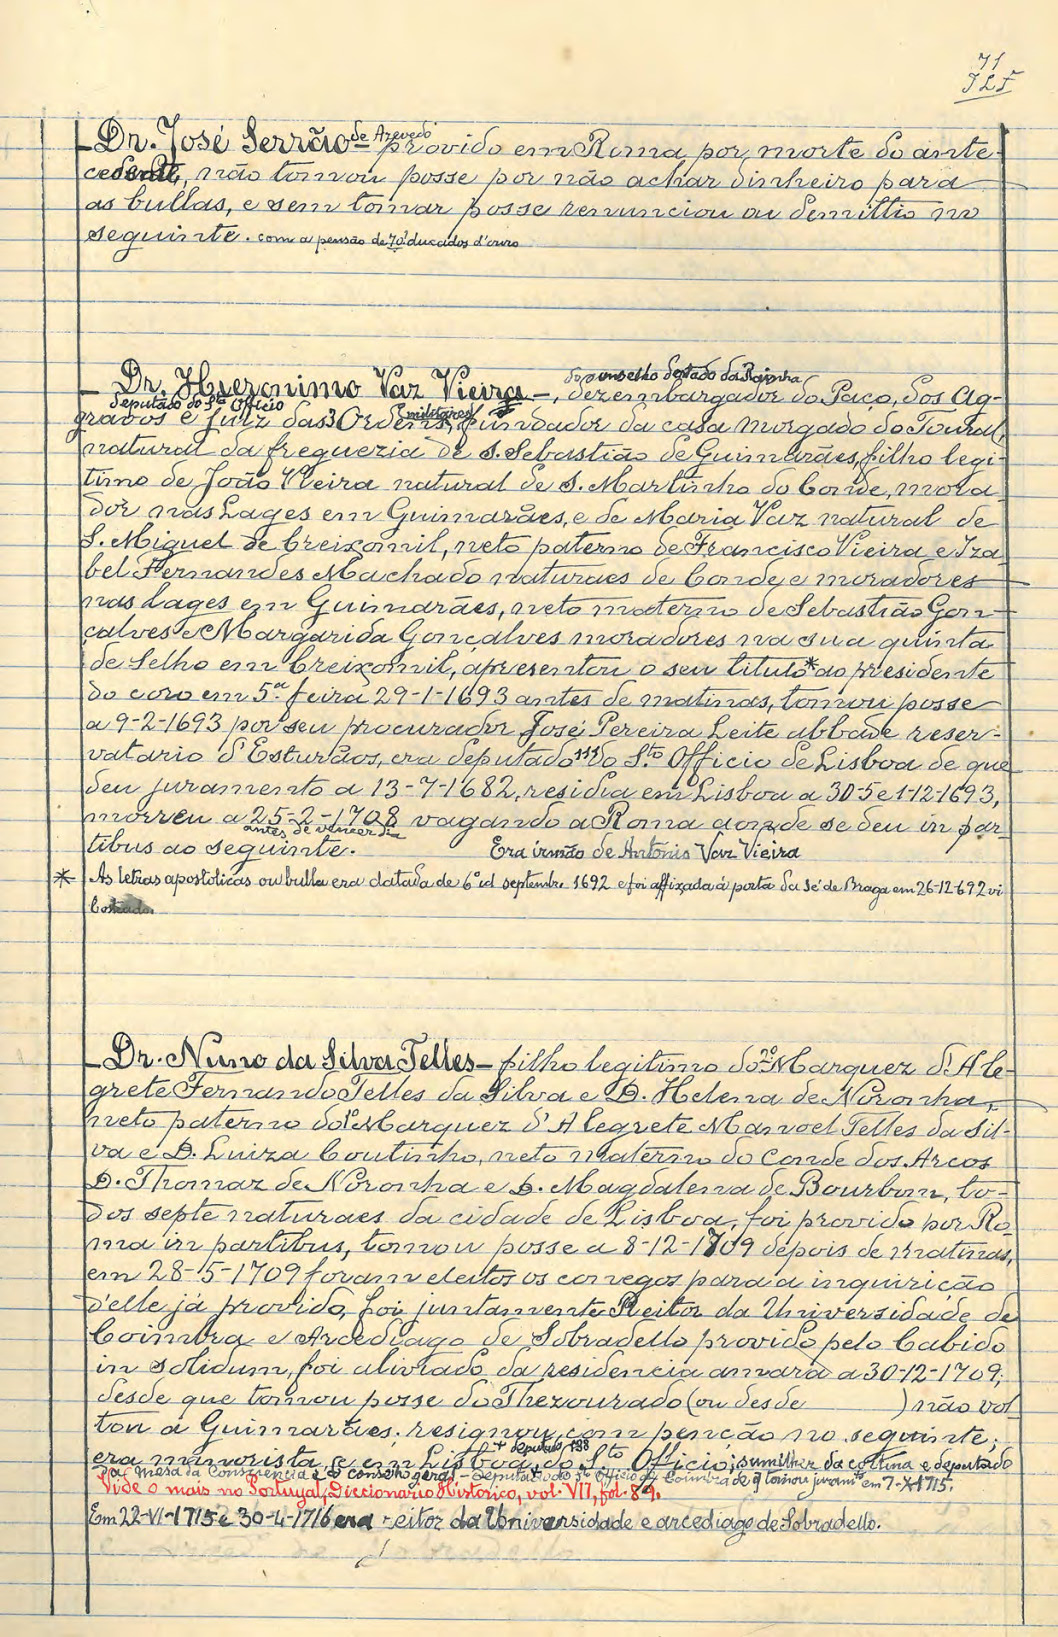 71
JLF
Dr. José Serrão de Azevedo provido em Roma por morte do ante-
cedente, não tomou posse por não achar dinheiro para
as bullas, e sem tomar posse renunciou ou demittio no
seguinte. com a pensão de 70 ducados d'ouro
do conselho d'estado da Rainha
Dr. Hieronimo Vaz Vieira —, dezembargador do Paço, dos Ag-
deputado do Sto Officio
gravos e juiz das 3 Ordens militares, fundador da casa morgado do Toural,
natural da freguezia de S. Sebastião de Guimarães, filho legi-
timo de João Vieira natural de S. Martinho do Conde, mora-
dor nas Lages em Guimarães, e de Maria Vaz natural de
S. Miguel de Creixomil, neto paterno de Francisco Vieira e Iza-
bel Fernandes Machado naturaes de Conde, e moradores
nas Lages em Guimarães, neto materno de Sebastião Gon-
çalves e Margarida Gonçalves moradores na sua quinta
de Selho em Creixomil, apresentou o seu titulo * ao presidente
do coro em 5.ª feira 29-1-1693 antes de matinas, tomou posse
a 9-2-1693 por seu procurador José Pereira Leite abbade reser-
vatario d'Esturãos, era deputado do S.to Officio de Lisboa de que
deu juramento a 13-7-1682, residia em Lisboa a 30-5 e 1-12-1693,
morreu a 25-2-1708 vagando a Roma aonde se deu in par-
antes de vencer dia
tibus ao seguinte. Era irmão de Antonio Vaz Vieira
* As letras apostolicas ou bulla era datada de 6º id septembr. 1692 e foi affixada á porta da Sé de Braga em 26-12-692
— Dr. Nuno da Silva Telles — filho legitimo do 2º Marquez d'Ale-
grete Fernando Telles da Silva e D. Helena de Noronha,
neto paterno do 1º Marquez d'Alegrete Manoel Telles da Sil-
va e D. Luiza Coutinho, neto materno do Conde dos Arcos
D. Thomaz de Noronha e D. Magdalena de Bourbon, to-
dos septe naturaes da cidade de Lisboa, foi provido por Ro-
ma in partibus, tomou posse a 8-12-1709 depois de matinas,
em 28-5-1709 foram eleitos os conegos para a inquirição
d'elle já provido, foi juntamente Reitor da Universidade de
Coimbra e Arcediago de Sobradello provido pelo Cabido
in solidum, foi alivrado da residencia a 30-12-1709;
desde que tomou posse do Thezourado (ou desde ) não vol-
tou a Guimarães; resignou com penção no seguinte;
era minorista, e em Lisboa deputado do S.to Officio; sumilher da cortina e deputado
da Mesa da Consciencia e do conselho geral — Deputado do Sto Officio de Coimbra de q tomou juramto em 7-X-1715.
Vide o mais no Portugal, Diccionario Historico, vol. VII, fol. 89.
Em 22-VI-1715 e 30-4-1716 era reitor da Universidade e arcediago de Sobradello.